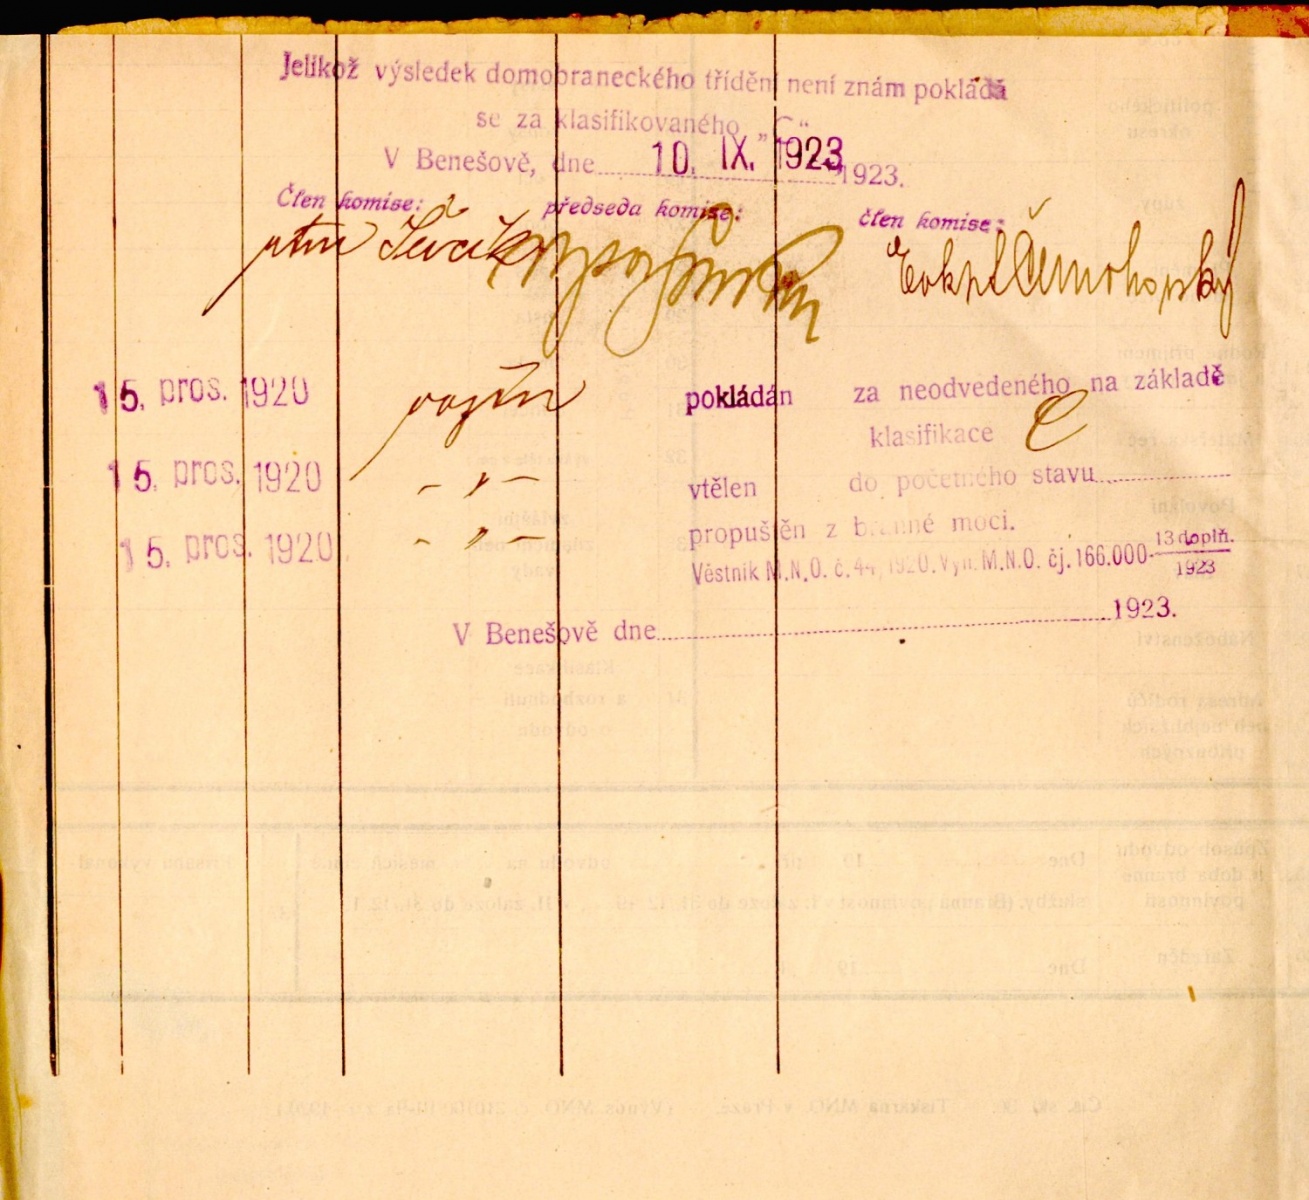 Jelikož výsledek domobraneckého třídění není znám pokládá
se za klasifikovaného „C“
V Benešově, dne 10. IX. 1923 1923.
Člen komise: předseda komise: člen komise:
15. pros. 1920 pokládán za neodvedeného na základě
klasifikace C
15. pros. 1920 - „ - vtělen do početného stavu
15. pros. 1920. - „ - propuštěn z branné moci.
Věstník M.N.O. č. 44, 1920. Vyn. M.N.O. čj. 166.000- 13 doplň. 1923
V Benešově dne 1923.